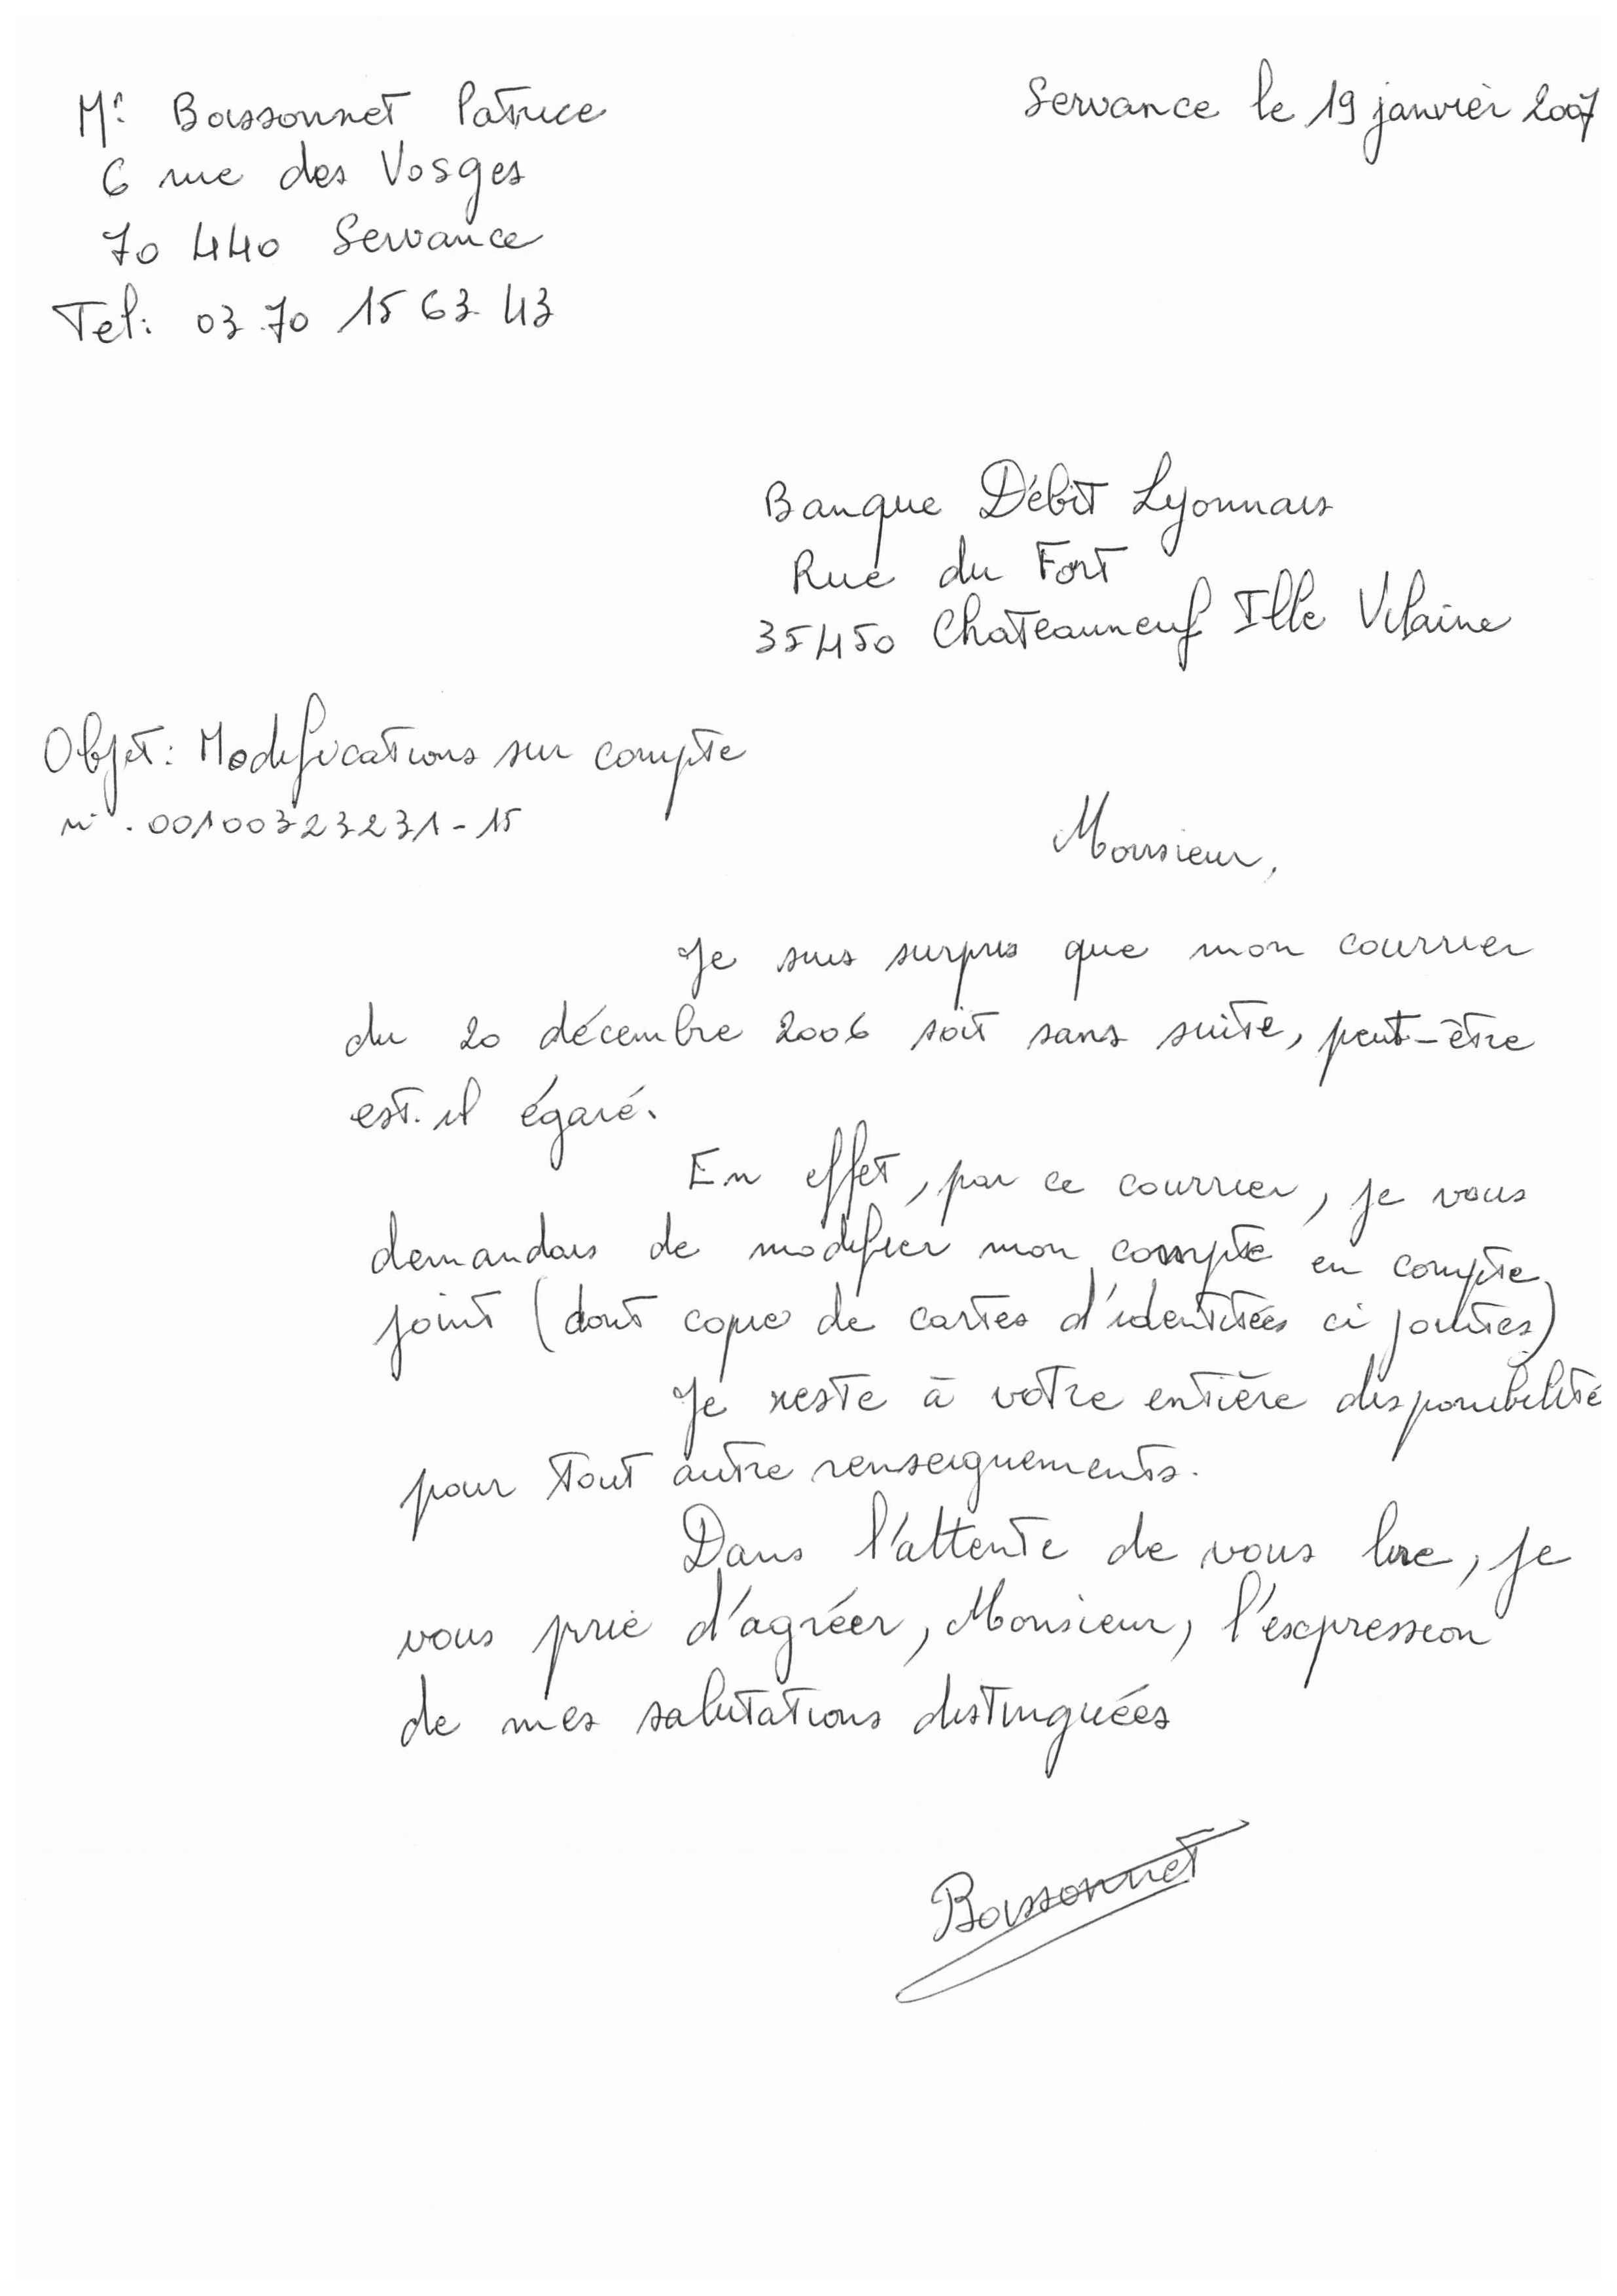 Mr Boissonnet Patrice
6 rue des Vosges
70 440 Servance
Tel: 03 70 15 63 43
Servance le 19 janvier 2007
Banque Débit Lyonnais
Rue du Fort
35450 Chateauneuf Ille Vilaine
Objet: Modifications sur compte
n° . 00100323231-15
Monsieur,
Je suis surpris que mon courrier
du 20 décembre 2006 soit sans suite, peut-être
est-il égaré.
En effet, par ce courrier, je vous
demandais de modifier mon compte en compte
joint (dont copie de cartes d'identitées ci jointes)
Je reste à votre entière disponibilité
pour tout autre renseignements.
Dans l'attente de vous lire, je
vous prie d'agréer, Monsieur, l'expression
de mes salutations distinguées
Boissonnet